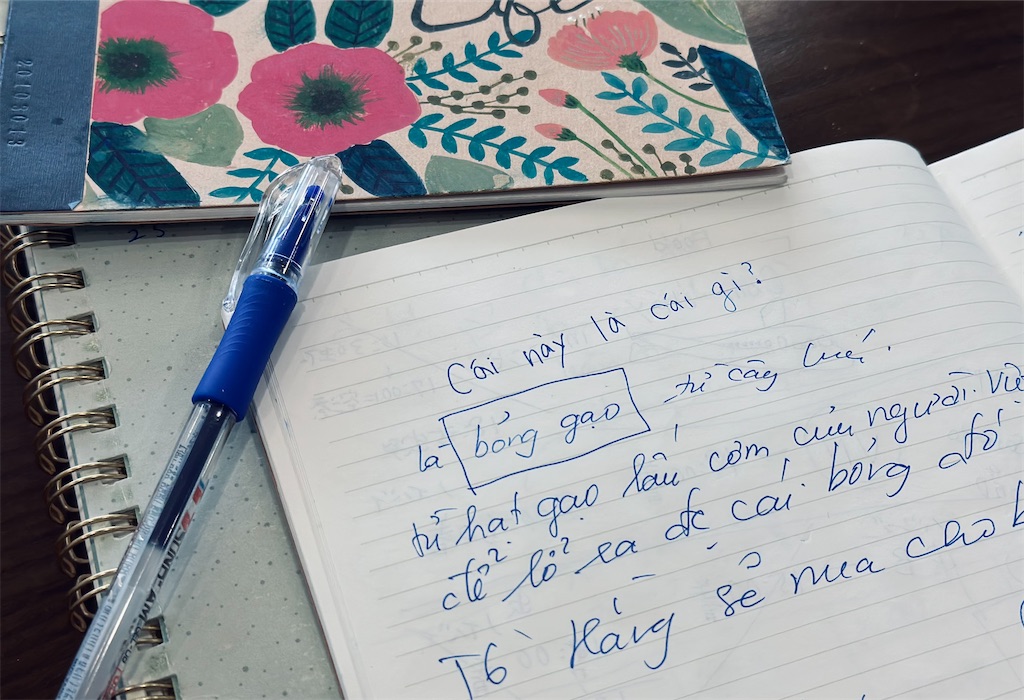 20103013
25
Cái này là cái gì?
là bỏng gạo từ cây lúa.
từ hạt gạo lấu cơm của người Việ
để nổ ra đc cái bỏng đó
T6 Hằng sẽ mua cho